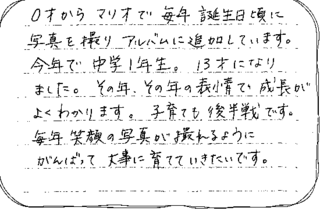 0才から マリオで 毎年 誕生日頃に
写真を撮り アルバムに追加しています。
今年で 中学1年生。 13才になり
ました。 その年、その年の表情で 成長が
よくわかります。 子育ても 後半戦です。
毎年 笑顔の写真が 撮れるように
がんばって 大事に育てていきたいです。